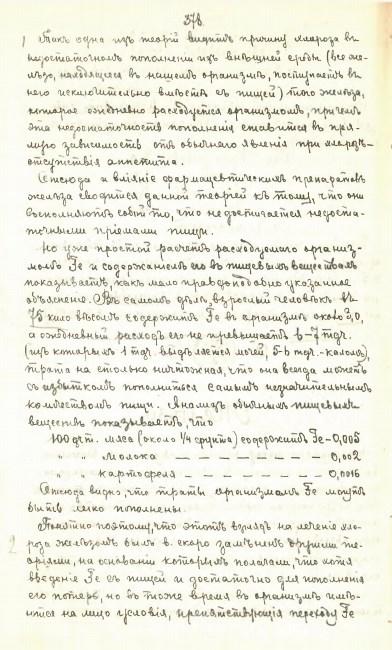 378.
1 Такъ одна изъ теорій видитъ причину хлороза въ
недостаточномъ пополненіи изъ внѣшней среды (все же-
лѣзо, находящееся въ нашемъ организмѣ, поступаетъ въ
него исключительно вмѣстѣ съ пищей) того желѣза,
которое ежедневно расходуется организмомъ, причемъ
эта недостаточность пополненія ставится въ пря-
мую зависимость отъ обычнаго явленія при хлорозѣ-
отсутствія аппетита.
Отсюда и вліяніе фармацевтическихъ препаратовъ
желѣза сводится данной теоріей къ тому, что они
восполняютъ собой то, что не достигается недоста-
точными пріемами пищи.
Но уже простой расчетъ расходуемаго организ-
момъ Fe и содержанія его въ пищевыхъ веществахъ
показываетъ, какъ мало правдоподобно указанное
объясненіе. Въ самомъ дѣлѣ, взрослый человѣкъ въ
75 кило вѣсомъ содержитъ Fe въ организмѣ около 3,0,
а ежедневный расходъ его не превышаетъ 6-7 mgr.
(изъ которыхъ 1 mgr. выдѣляется мочей, 5-6 mgr.-каломъ),
трата на столько ничтожная, что она всегда можетъ
съ избыткомъ пополниться самымъ незначительнымъ
количествомъ пищи. Анализъ обычныхъ пищевыхъ
веществъ показываетъ, что
100 grm. мяса (около 1/4 фунта) содержитъ Fe - 0,005
" " молока — — — — — — — 0,002
" " картофеля — — — — — — 0,0016
Отсюда видно, что траты организмомъ Fe могутъ
быть легко пополнены.
2 Понятно поэтому, что этотъ взглядъ на леченіе хло-
роза желѣзомъ былъ в. скоро замѣненъ другими те-
оріями, на основаніи которыхъ полагали, что хотя
введеніе Fe съ пищей и достаточно для пополненія
его потерь, но въ тоже время въ организмѣ имѣ-
ются на лицо условія, препятствующія переходу Fe